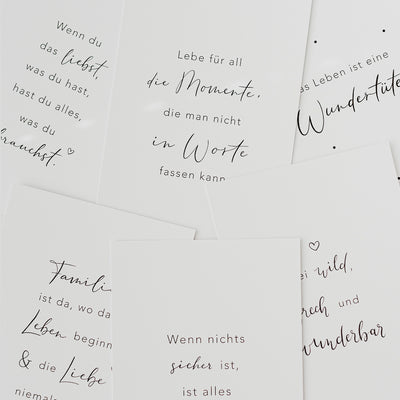 Wenn du
das liebst,
was du hast,
hast du alles,
was du
brauchst.
Lebe für all
die Momente,
die man nicht
in Worte
fassen kann
das Leben ist eine
Wundertüte
Familie
ist da, wo das
Leben beginnt
& die Liebe
niemals
Wenn nichts
sicher ist,
ist alles
sei wild,
frech und
wunderbar